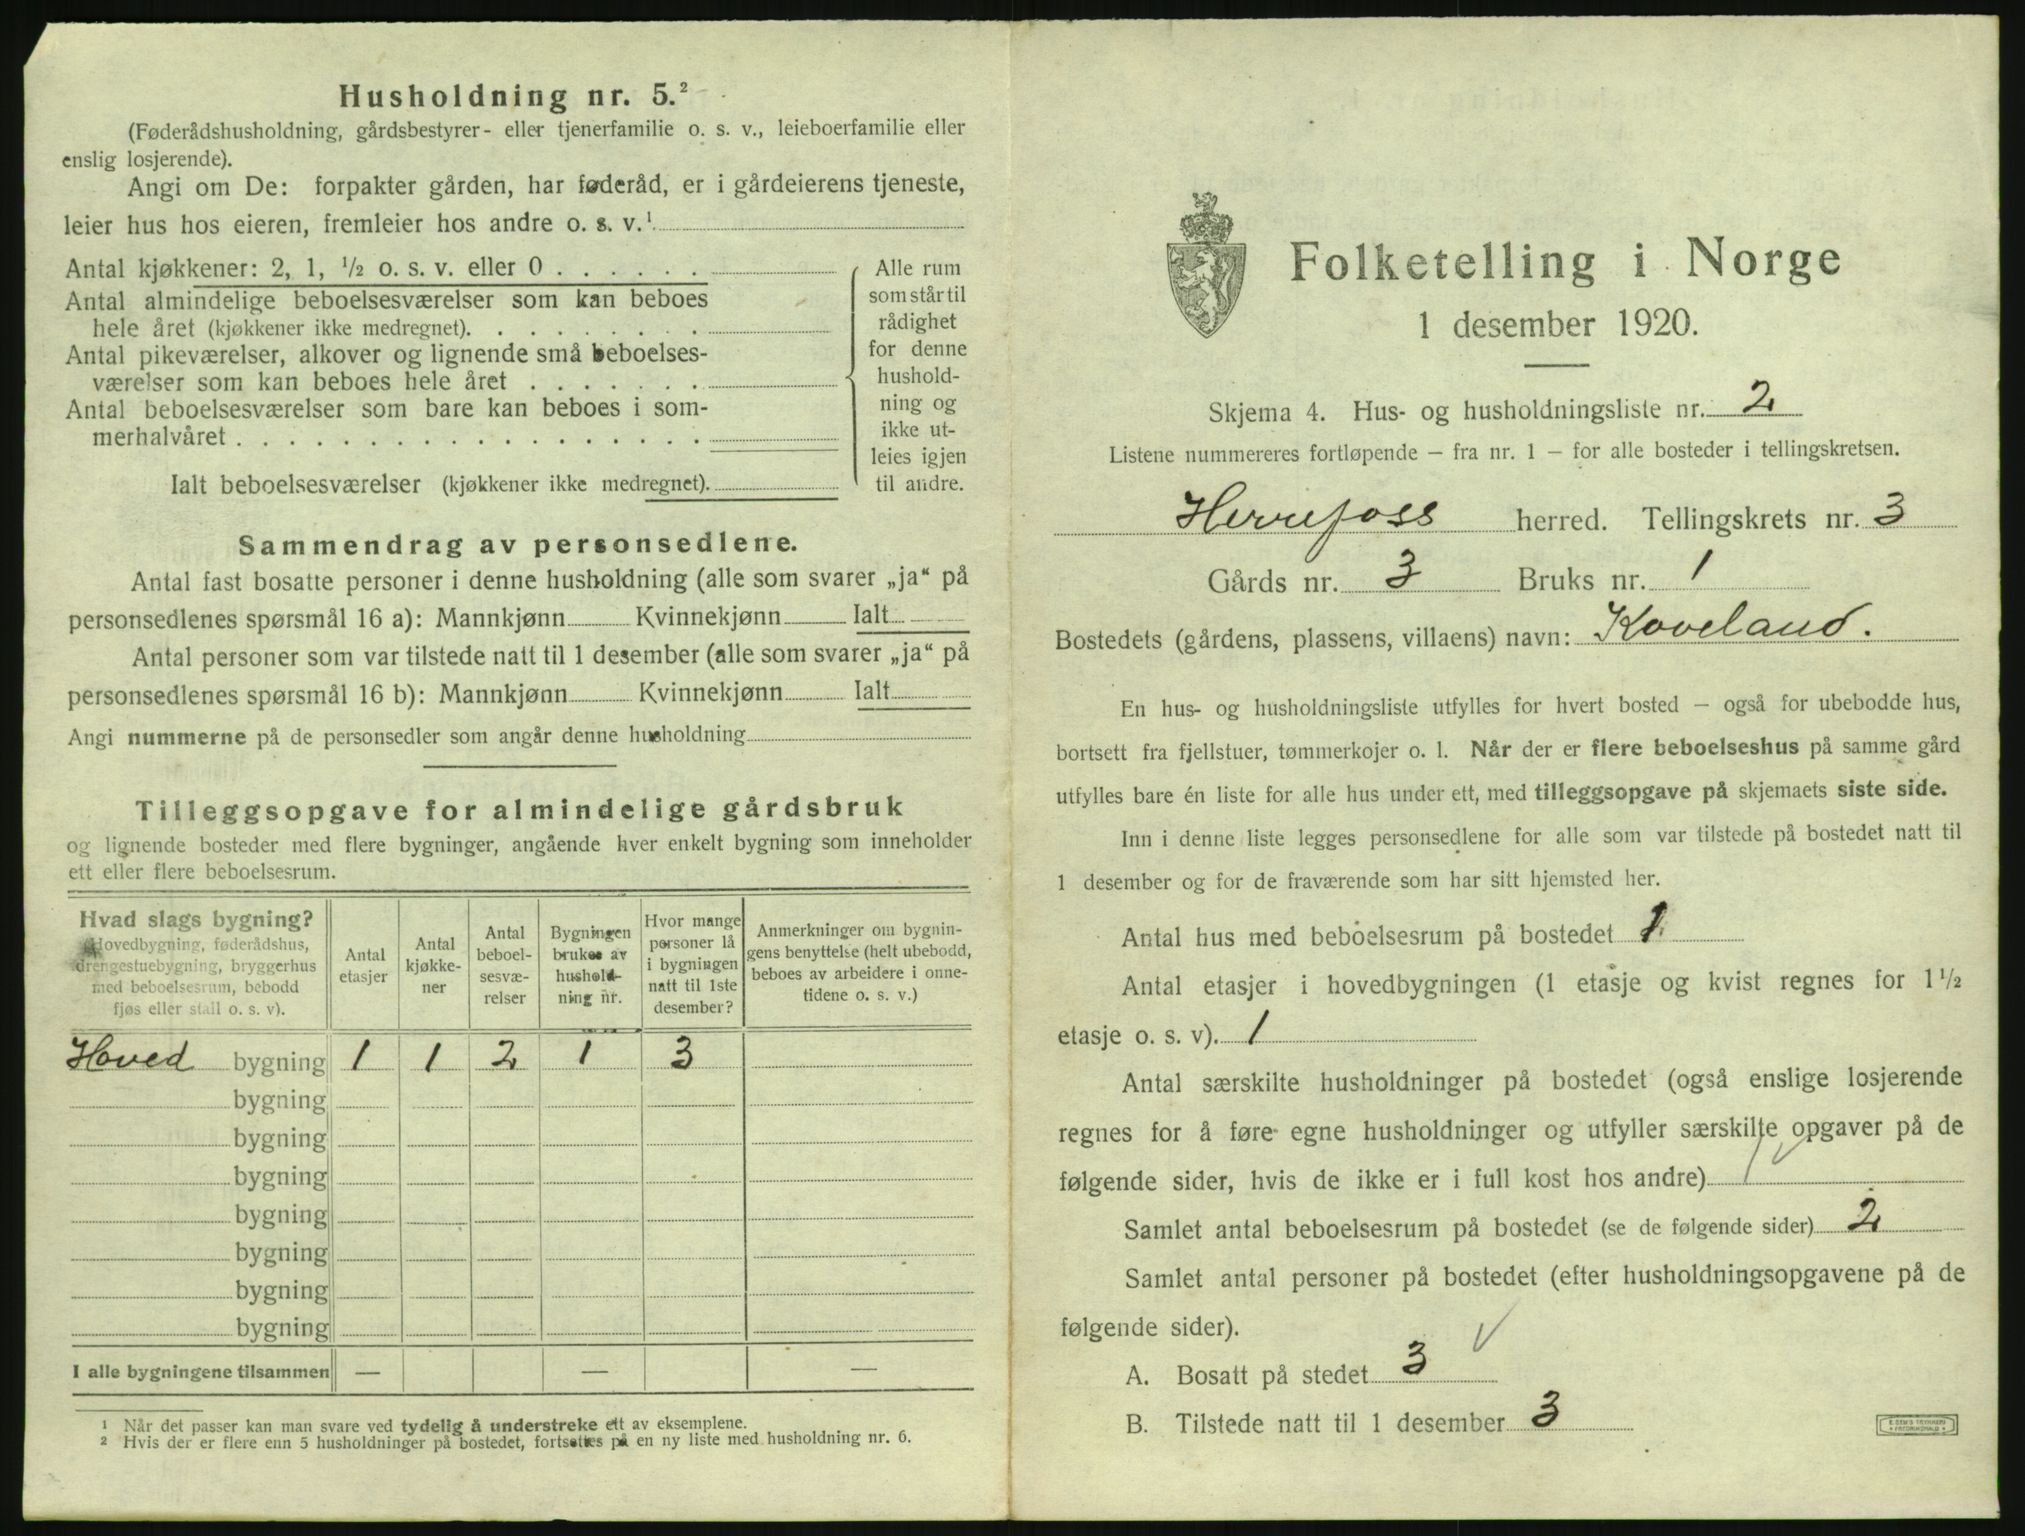 Husholdning nr. 5.²
(Føderådshusholdning, gårdsbestyrer- eller tjenerfamilie o. s. v., leieboerfamilie eller
enslig losjerende).
Angi om De: forpakter gården, har føderåd, er i gårdeierens tjeneste,
leier hus hos eieren, fremleier hos andre o. s. v.¹
Antal kjøkkener: 2, 1, ½ o. s. v. eller 0 . . . . . .
Antal almindelige beboelsesværelser som kan beboes
hele året (kjøkkener ikke medregnet). . . . . . . . .
Antal pikeværelser, alkover og lignende små beboelses-
værelser som kan beboes hele året . . . . . . .
Antal beboelsesværelser som bare kan beboes i som-
merhalvåret . . . . . . . . . . . . . . . . . .
Ialt beboelsesværelser (kjøkkener ikke medregnet).
Alle rum
som står til
rådighet
for denne
hushold-
ning og
ikke ut-
leies igjen
til andre.
Sammendrag av personsedlene.
Antal fast bosatte personer i denne husholdning (alle som svarer „ja“ på
personsedlenes spørsmål 16 a): Mannkjønn Kvinnekjønn Ialt
Antal personer som var tilstede natt til 1 desember (alle som svarer „ja“ på
personsedlenes spørsmål 16 b): Mannkjønn Kvinnekjønn Ialt
Angi nummerne på de personsedler som angår denne husholdning
Tilleggsopgave for almindelige gårdsbruk
og lignende bosteder med flere bygninger, angående hver enkelt bygning som inneholder
ett eller flere beboelsesrum.
Hvad slags bygning?
Hovedbygning, føderådshus,
drengestuebygning, bryggerhus
med beboelsesrum, bebodd
fjøs eller stall o. s. v).
Antal
etasjer
Antal
kjøkke-
ner
Antal
beboel-
sesvæ-
relser
Bygningen
brukes av
hushold-
ning nr.
Hvor mange
personer lå
i bygningen
natt til 1ste
desember?
Anmerkninger om bygnin-
gens benyttelse (helt ubebodd,
beboes av arbeidere i onne-
tidene o. s. v.)
Hoved bygning 1 1 2 1 3
bygning
bygning
bygning
bygning
bygning
bygning
bygning
I alle bygningene tilsammen — — —
¹ Når det passer kan man svare ved tydelig å understreke ett av eksemplene.
² Hvis der er flere enn 5 husholdninger på bostedet, fortsettes på en ny liste med husholdning nr. 6.
Folketelling i Norge
1 desember 1920.
Skjema 4. Hus- og husholdningsliste nr. 2
Listene nummereres fortløpende — fra nr. 1 — for alle bosteder i tellingskretsen.
Herrefoss herred. Tellingskrets nr. 3
Gårds nr. 3 Bruks nr. 1
Bostedets (gårdens, plassens, villaens) navn: Koveland.
En hus- og husholdningsliste utfylles for hvert bosted — også for ubebodde hus,
bortsett fra fjellstuer, tømmerkojer o. l. Når der er flere beboelseshus på samme gård
utfylles bare én liste for alle hus under ett, med tilleggsopgave på skjemaets siste side.
Inn i denne liste legges personsedlene for alle som var tilstede på bostedet natt til
1 desember og for de fraværende som har sitt hjemsted her.
Antal hus med beboelsesrum på bostedet 1
Antal etasjer i hovedbygningen (1 etasje og kvist regnes for 1½
etasje o. s. v). 1
Antal særskilte husholdninger på bostedet (også enslige losjerende
regnes for å føre egne husholdninger og utfyller særskilte opgaver på de
følgende sider, hvis de ikke er i full kost hos andre) 1
Samlet antal beboelsesrum på bostedet (se de følgende sider) 2
Samlet antal personer på bostedet (efter husholdningsopgavene på de
følgende sider).
A. Bosatt på stedet 3
B. Tilstede natt til 1 desember 3